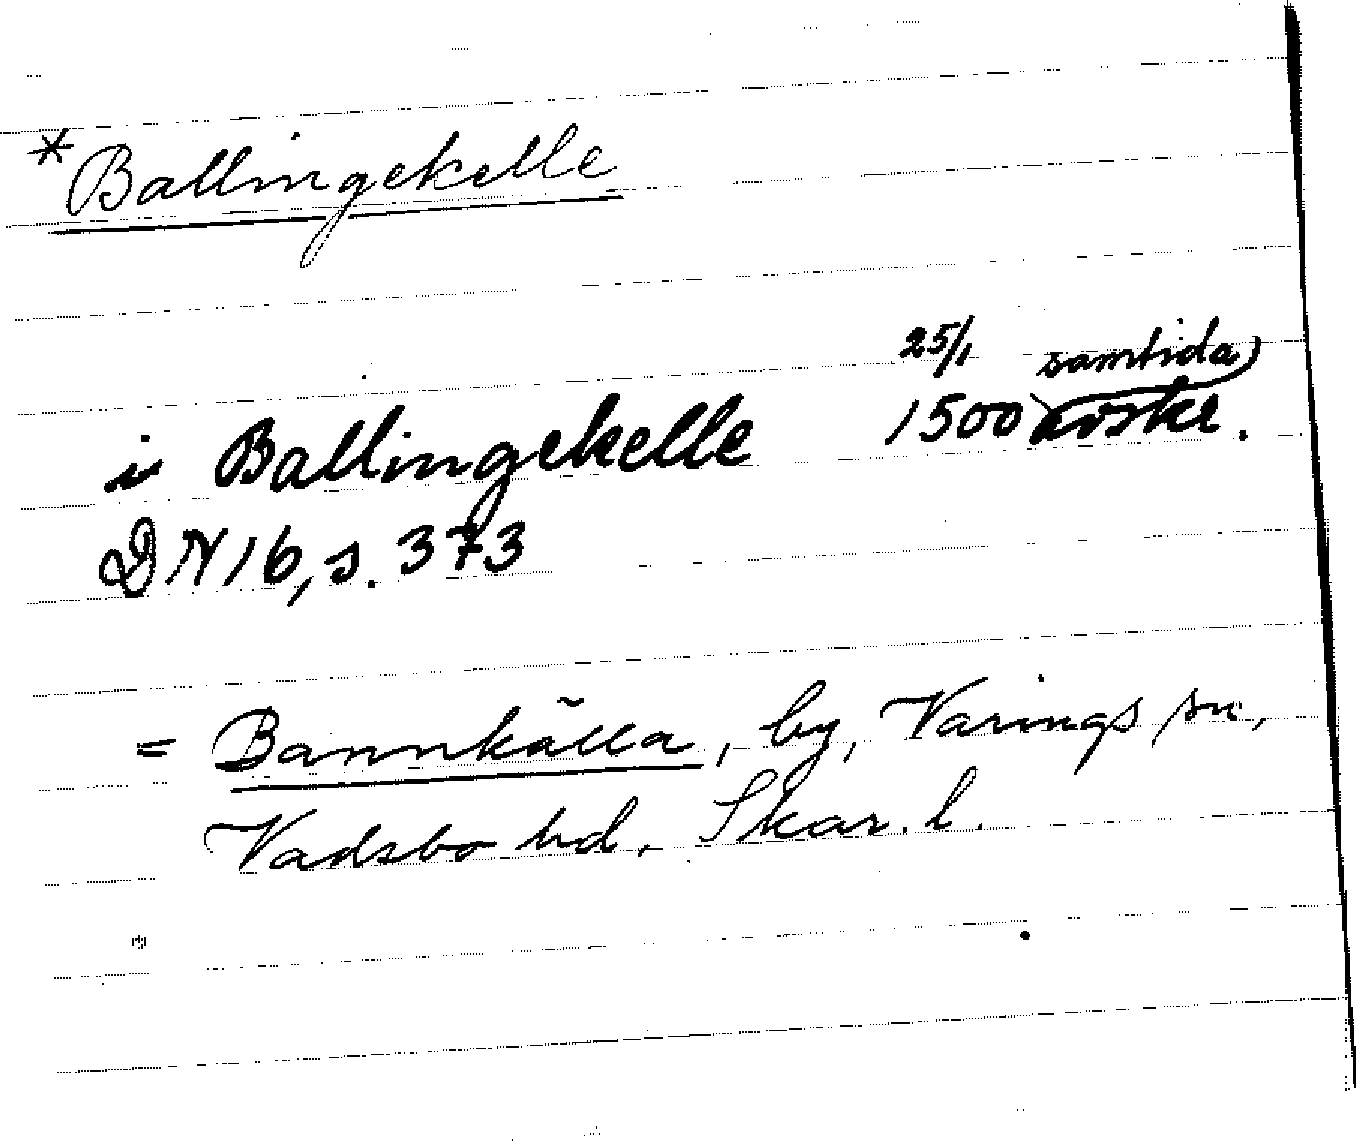 *Ballingekelle
i Ballingekelle 25/1 1500 samtida) avskr.
DN 16, s. 373
= Bannkälla, by, Varings sn,
Vadsbo hd. Skar. l.